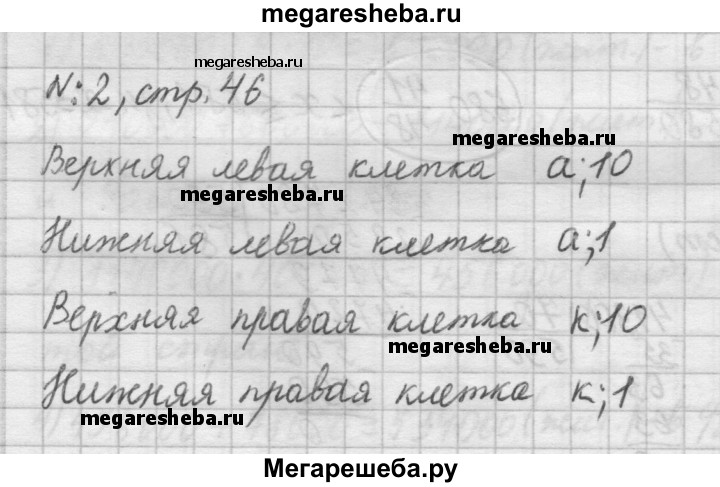 megaresheba.ru
megaresheba.ru
№ 2, стр. 46
Верхняя левая клетка а; 10
megaresheba.ru
Нижняя левая клетка а; 1
Верхняя правая клетка к; 10
megaresheba.ru
Нижняя правая клетка к; 1
megaresheba.ru
Мегарешеба.ру